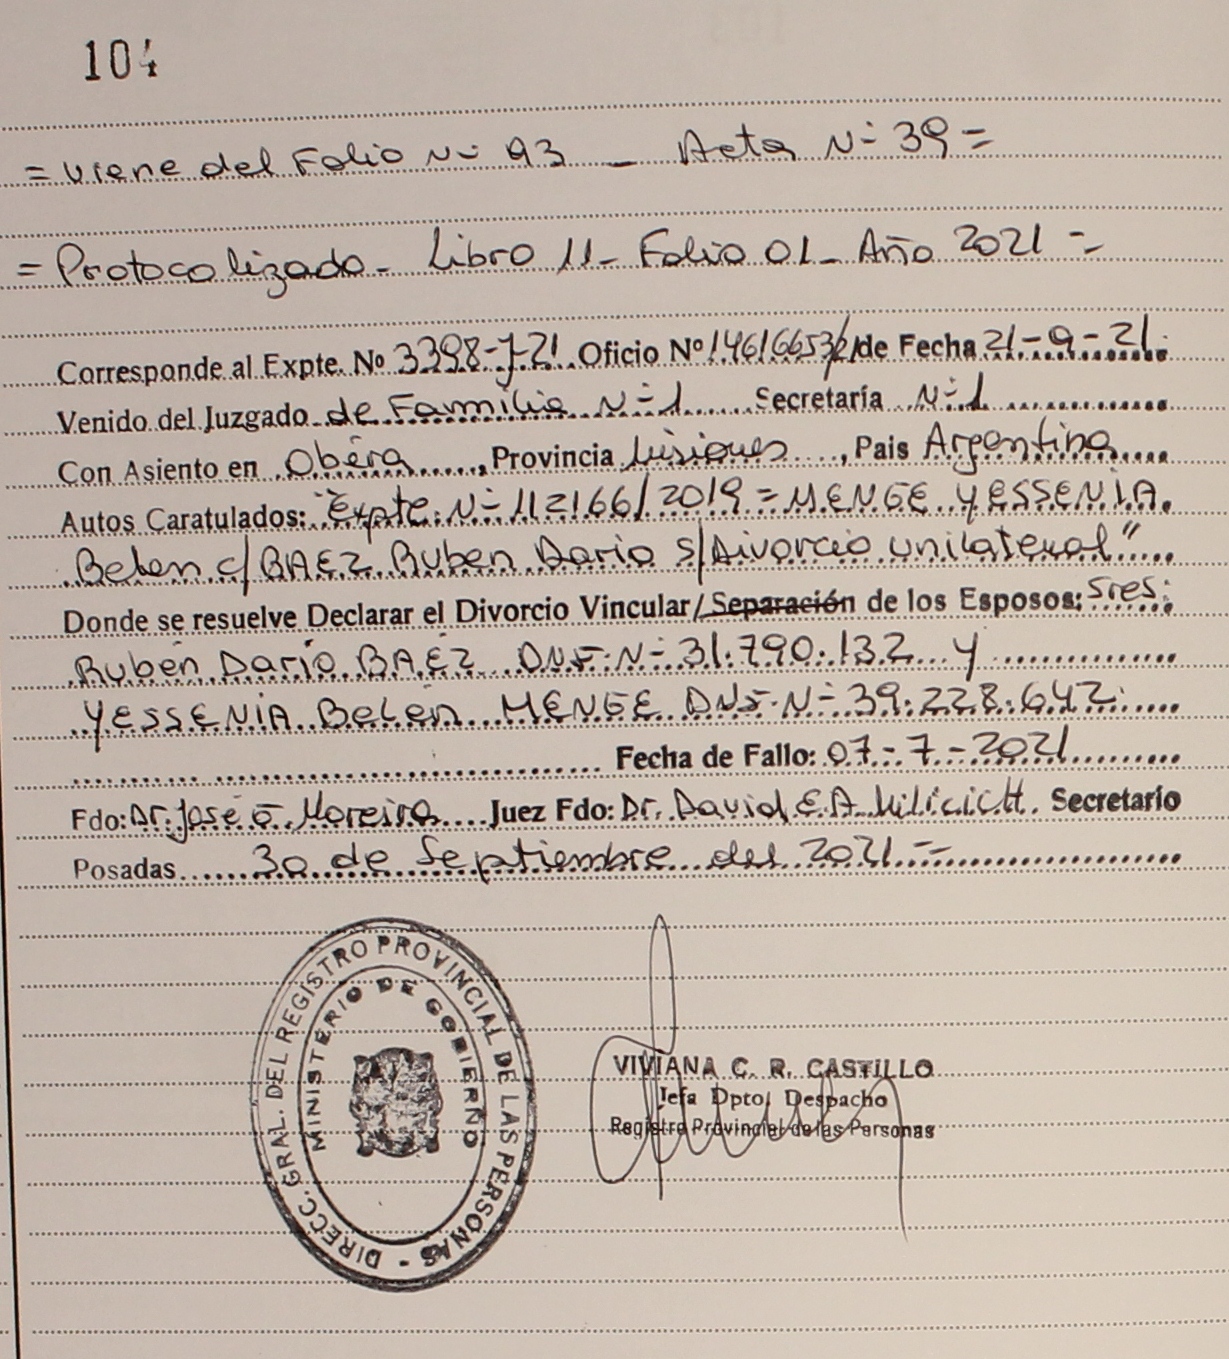 104
= Viene del Folio Nº 93 _ Acta Nº 39 =
= Protocolizado - Libro 11 - Folio 01 - Año 2021 =
Corresponde al Expte. Nº 3398-J-21 Oficio Nº 14616653/ de Fecha 21-9-21.
Venido del Juzgado de Familia Nº 1 Secretaría Nº 1
Con Asiento en Oberá, Provincia Misiones, Pais Argentina
Autos Caratulados: "Expte. Nº 112166/2019 = MENGE YESSENIA
Belen c/ BAEZ Ruben Dario s/ Divorcio unilateral"
Donde se resuelve Declarar el Divorcio Vincular/Separación de los Esposos: Sres:
Rubén Darío BAEZ DNI. Nº 31.790.132 y
YESSENIA Belén MENGE DNI. Nº 39.228.642
Fecha de Fallo: 07-7-2021
Fdo: Dr. José G. Moreira Juez Fdo: Dr. David E.A. Milicich. Secretario
Posadas 30 de Septiembre del 2021.=
DIRECC. GRAL. DEL REGISTRO PROVINCIAL DE LAS PERSONAS -
MINISTERIO DE GOBIERNO
VIVIANA C. R. CASTILLO
Jefa Dpto. Despacho
Registro Provincial de las Personas